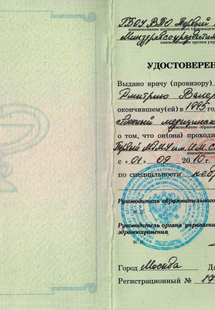 ГБОУ ВПО Первый
Минздравсоцразвития
УДОСТОВЕРЕН
Выдано врачу (провизору)
Дмитрию Вале
окончившему(ей) в 1995
медицинск
о том, что он(она) проходи
Первый МГМУ им. И.М. С
с «01» 09 2010
по специальности невр
Руководитель образовательного
М.П.
Руководитель органа управления
здравоохранения
М.П.
Город Москва Да
Регистрационный № 17